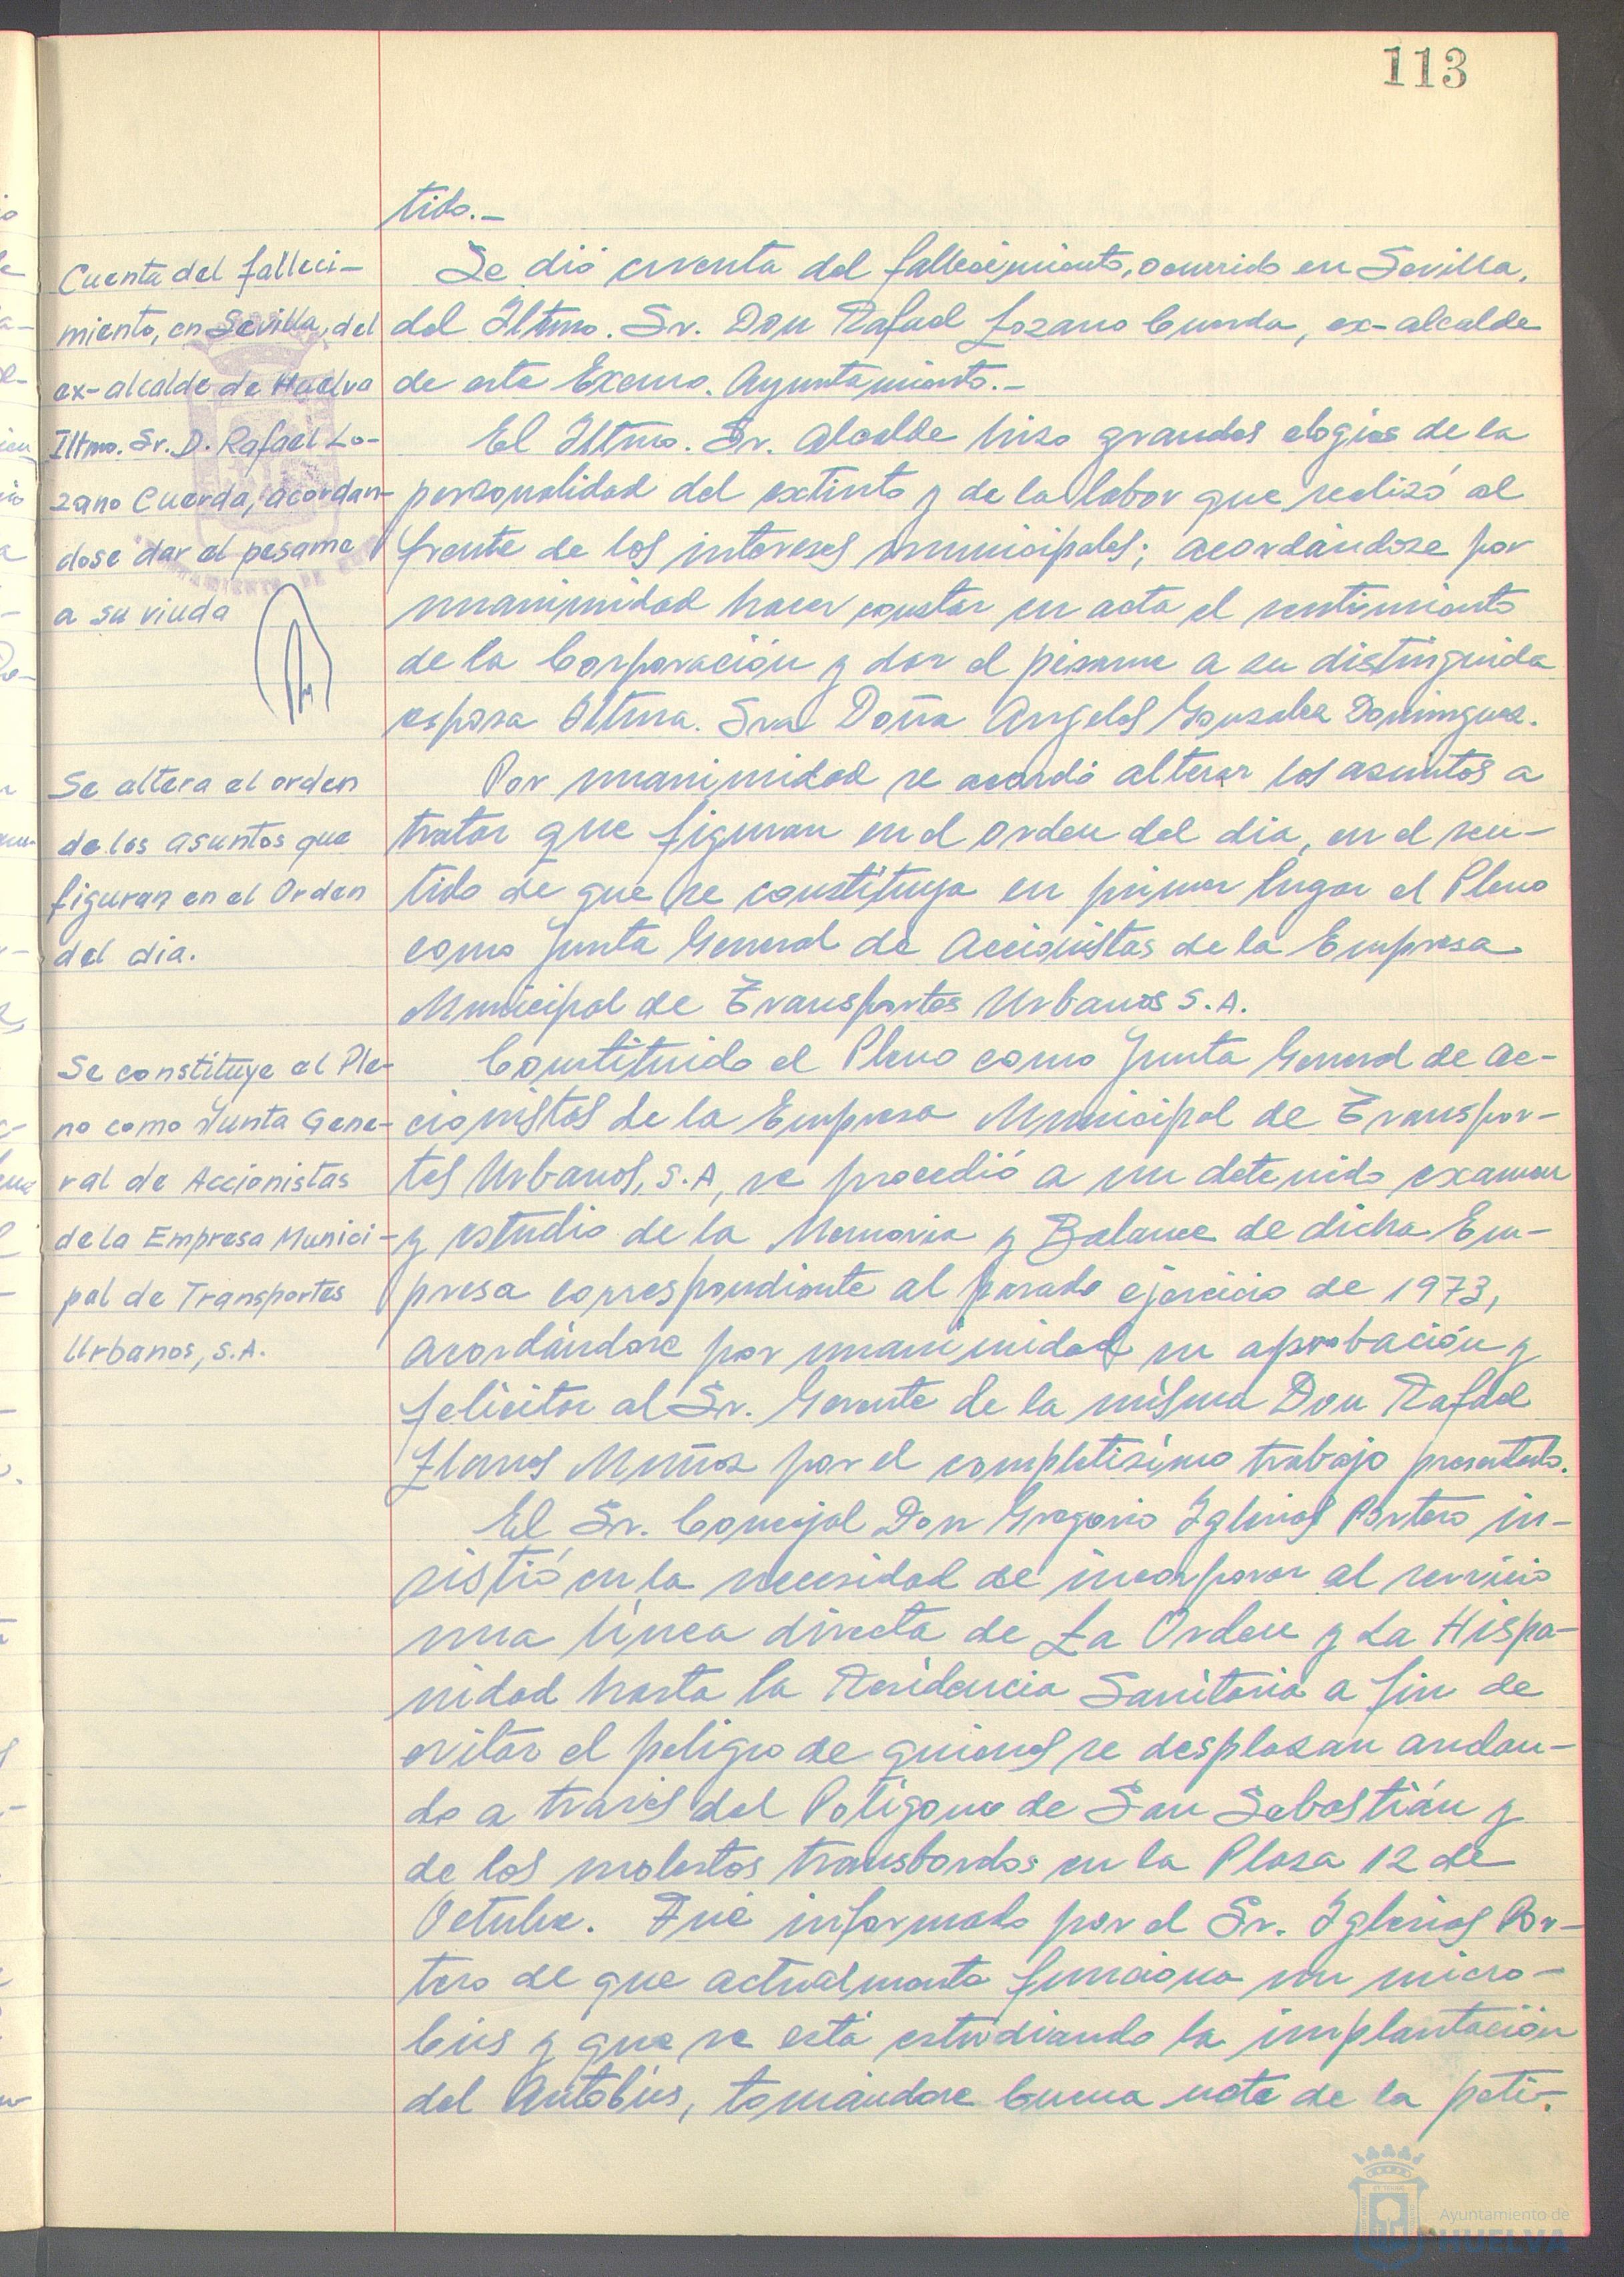 113
tido.-
Cuenta del falleci-
miento, en Sevilla, del
ex-alcalde de Huelva
Iltmo. Sr. D. Rafael Lo-
zano Cuerda, acordan-
dose dar el pesame
a su viuda
Se dió cuenta del fallecimiento, ocurrido en Sevilla,
del Iltmo. Sr. Don Rafael Lozano Cuerda, ex-alcalde
de este Excmo. Ayuntamiento.-
El Iltmo. Sr. Alcalde hizo grandes elogios de la
personalidad del extinto y de la labor que realizó al
frente de los intereses municipales; acordándose por
unanimidad hacer constar en acta el sentimiento
de la Corporación y dar el pésame a su distinguida
esposa Iltma. Sra Doña Angeles Gonzalez Dominguez.
Se altera el orden
de los asuntos que
figuran en el Orden
del dia.
Por unanimidad se acordó alterar los asuntos a
tratar que figuran en el orden del dia, en el sen-
tido de que se constituya en primer lugar el Pleno
como Junta General de Accionistas de la Empresa
Municipal de Transportes Urbanos S.A.
Se constituye el Ple-
no como Junta Gene-
ral de Accionistas
de la Empresa Munici-
pal de Transportes
Urbanos, S.A.
Constituido el Pleno como Junta General de Ac-
cionistas de la Empresa Municipal de Transpor-
tes Urbanos, S.A, se procedió a un detenido examen
y estudio de la Memoria y Balance de dicha Em-
presa correspondiente al pasado ejercicio de 1973,
acordándose por unanimidad su aprobación y
felicitar al Sr. Gerente de la misma Don Rafael
Llanes Muñoz por el completisimo trabajo presentado.
El Sr. Concejal Don Gregorio Iglesias Portero in-
sistió en la necesidad de incorporar al servicio
una línea directa de La Orden y La Hispa-
nidad hasta la Residencia Sanitaria a fin de
evitar el peligro de quienes se desplazan andan-
do a través del Polígono de San Sebastián y
de los molestos transbordos en la Plaza 12 de
Octubre. Fué informado por el Sr. Iglesias Por-
tero de que actualmente funciona un micro-
bús y que se está estudiando la implantación
del Autobús, tomándose buena nota de la peti-
Ayuntamiento de
HUELVA